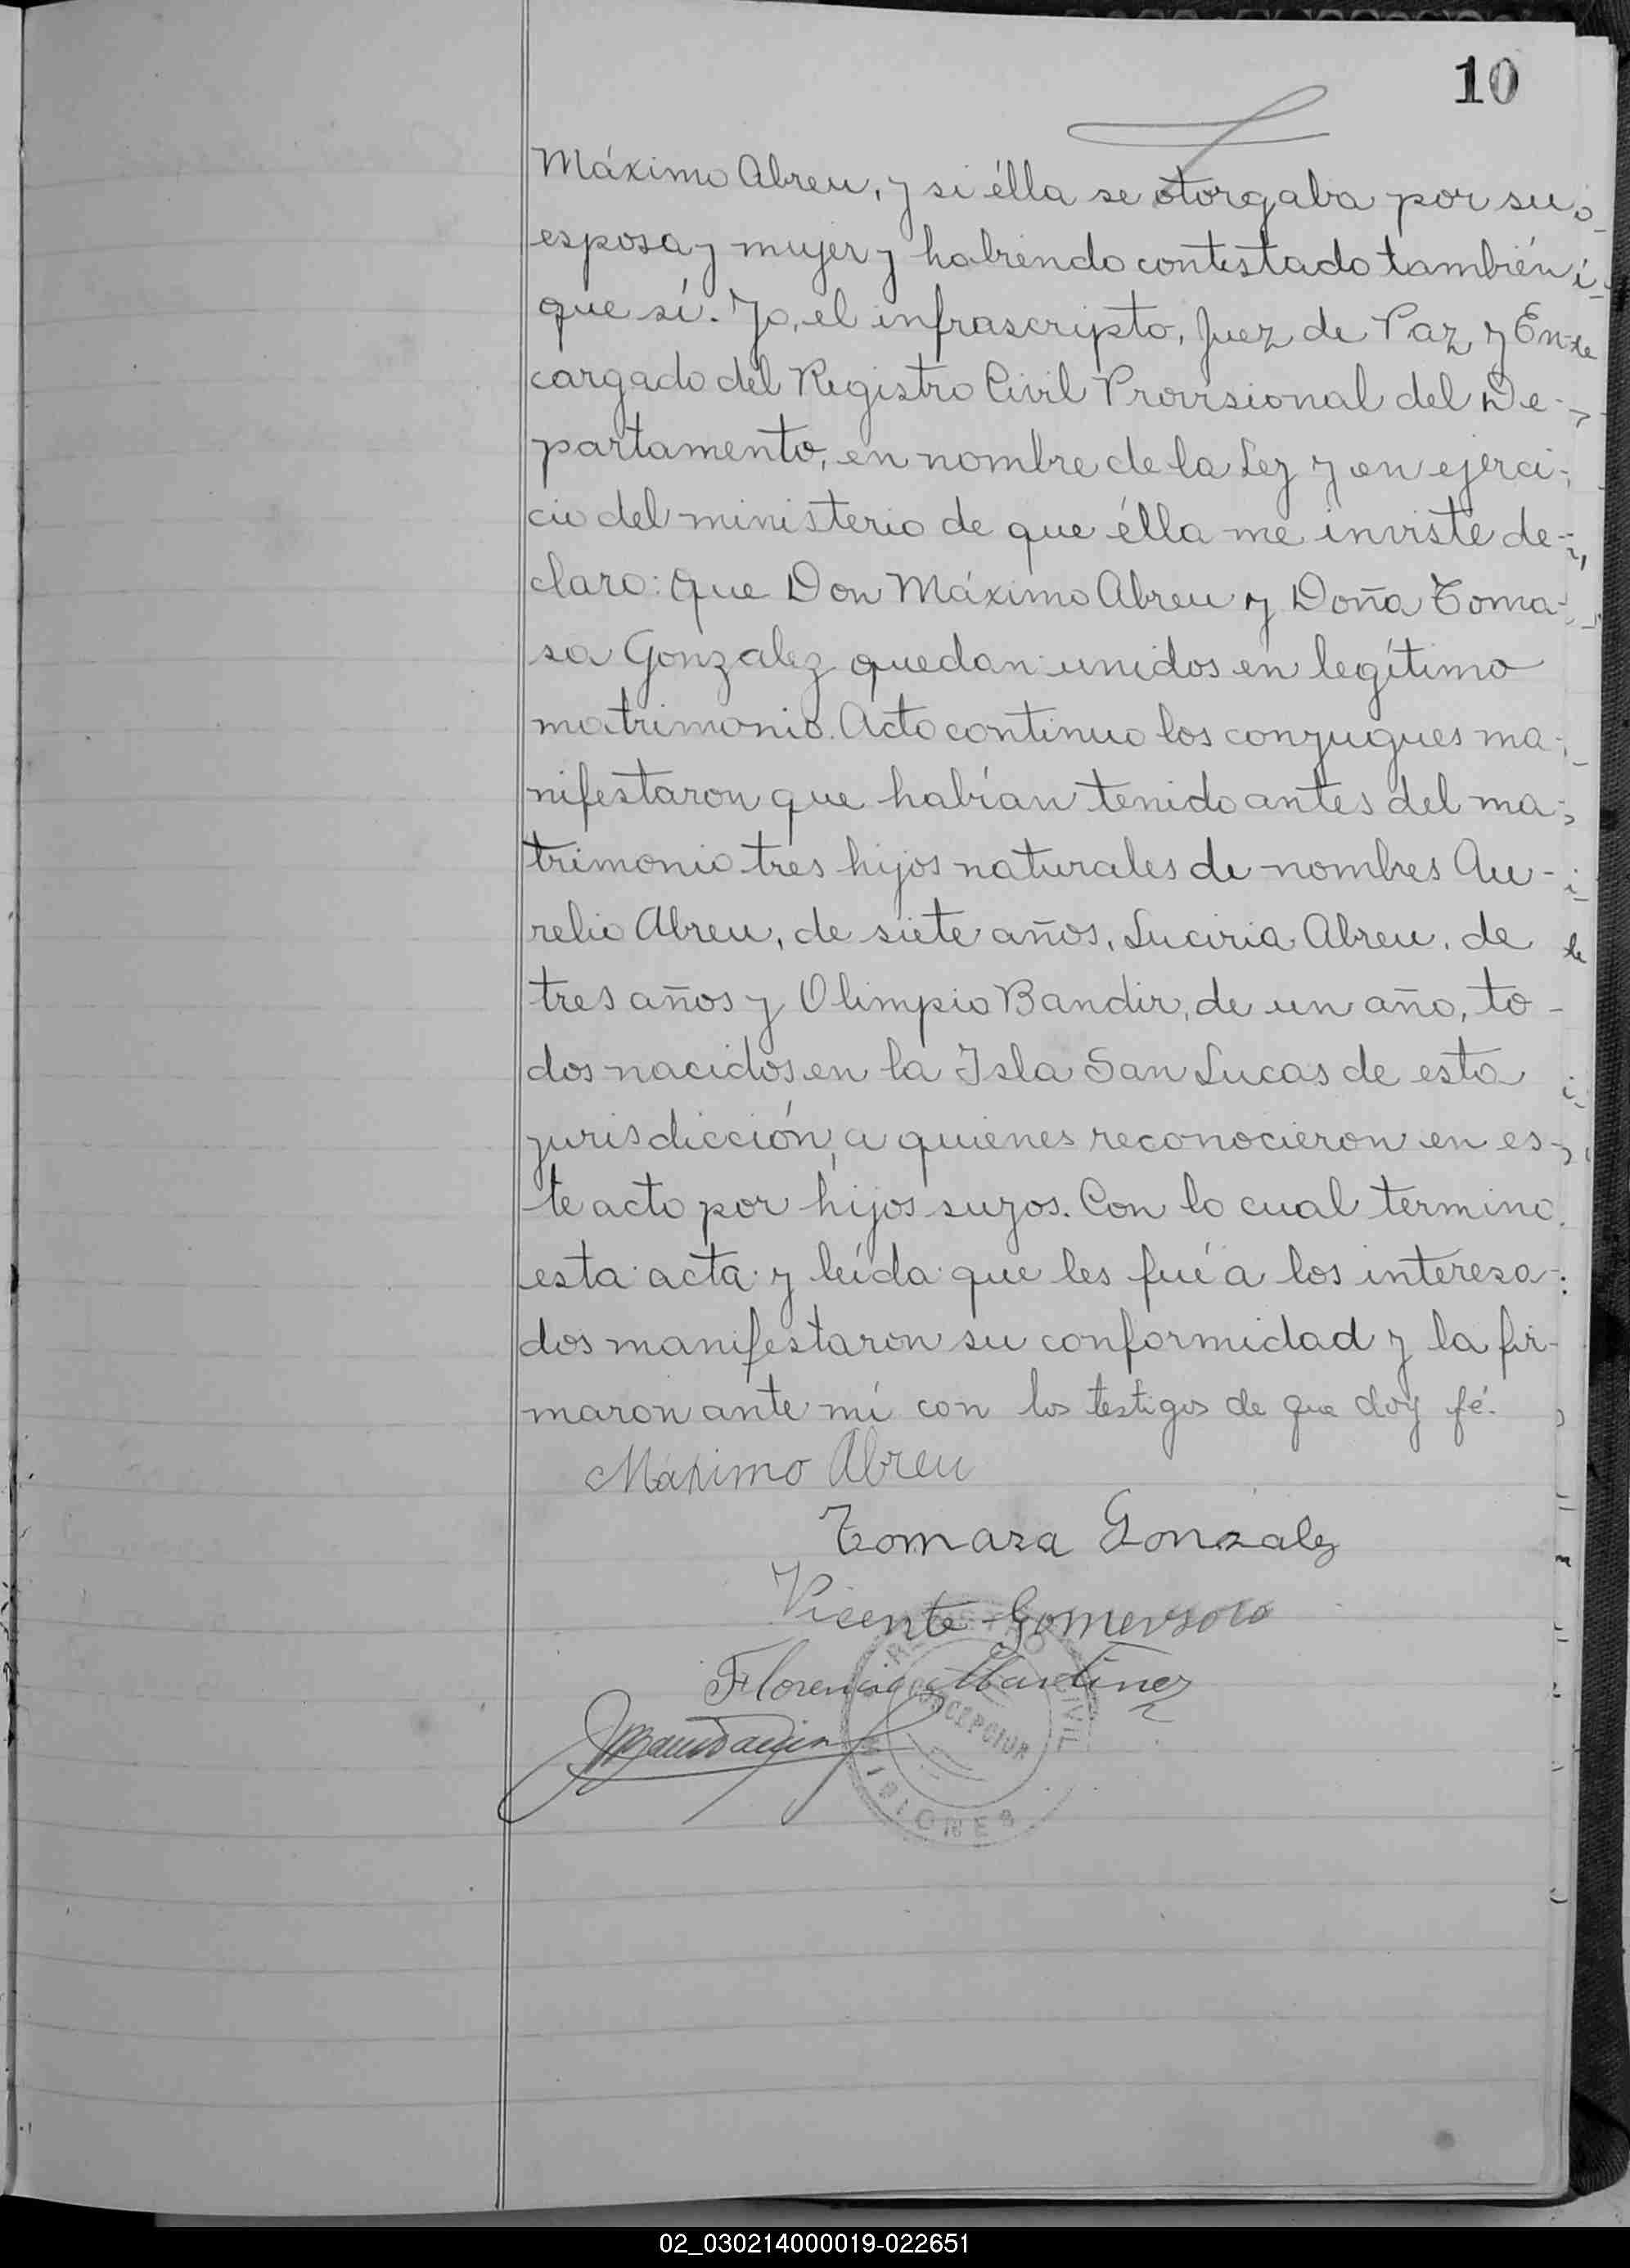 10
Máximo Abreu, y si élla se otorgaba por su
esposa y mujer y habiendo contestado también
que sí. Yo, el infrascripto, Juez de Paz y En-
cargado del Registro Civil Provisional del De-
partamento, en nombre de la Ley y en ejerci-
cio del ministerio de que élla me inviste de-
claro: Que Don Máximo Abreu y Doña Toma-
sa Gonzalez quedan unidos en legítimo
matrimonio. Acto continuo los conyugues ma-
nifestaron que habían tenido antes del ma-
trimonio tres hijos naturales de nombres Au-
relio Abreu, de siete años, Luciria Abreu, de
tres años y Olimpio Bandir, de un año, to-
dos nacidos en la Isla San Lucas de esta
jurisdicción, a quienes reconocieron en es-
te acto por hijos suyos. Con lo cual termino
esta acta y leída que les fué a los interesa-
dos manifestaron su conformidad y la fir-
maron ante mí con los testigos de que doy fé.
Maximo Abreu
Tomasa Gonzalez
Vicente Gomersoro
Florencio Martinez
REGISTRO CIVIL
CONCEPCION
MISIONES
02_030214000019-022651